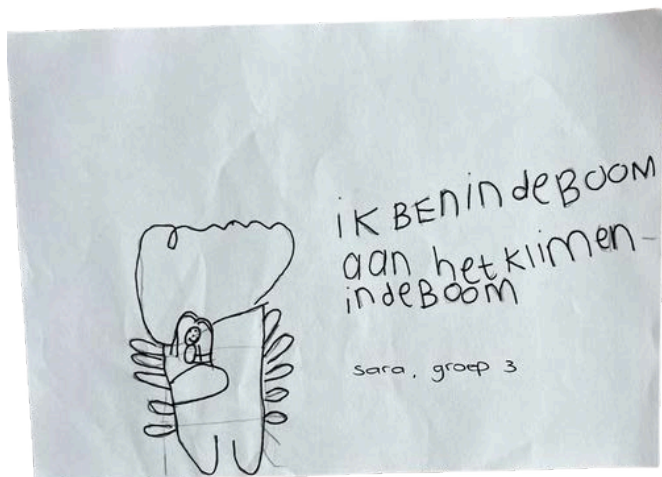 iK BENindeBOOM
aan hetklimen-
indeBOOM
sara, groep 3